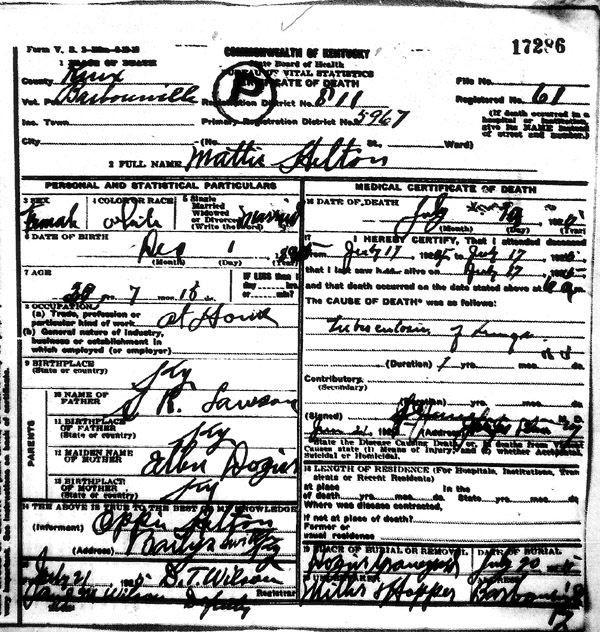 Form V. S.
COMMONWEALTH OF KENTUCKY
State Board of Health
BUREAU OF VITAL STATISTICS
CERTIFICATE OF DEATH
17286
1 PLACE OF DEATH
County Knox
Vot. Pct. Barbourville
Registration District No. 811
Inc. Town
Primary Registration District No. 5967
File No.
Registered No. 61
(If death occurred in a hospital or institution, give its NAME instead of street and number.)
City (No. St., Ward)
P
2 FULL NAME Mattie Hilton
PERSONAL AND STATISTICAL PARTICULARS
3 SEX
Female
4 COLOR OR RACE
white
5 Single
Married
Widowed
or Divorced
(Write the word)
married
6 DATE OF BIRTH
Dec 1
(Month) (Day) (Year)
7 AGE
28 yrs. 7 mos. 18 ds.
IF LESS than 1 day hrs. or min.
8 OCCUPATION
(a) Trade, profession or particular kind of work at Home
(b) General nature of industry, business or establishment in which employed (or employer)
9 BIRTHPLACE
(State or country) Ky
PARENTS
10 NAME OF FATHER
R. Lawson
11 BIRTHPLACE OF FATHER
(State or country) Ky
12 MAIDEN NAME OF MOTHER
Ellen Dozier
13 BIRTHPLACE OF MOTHER
(State or country) Ky
14 THE ABOVE IS TRUE TO THE BEST OF MY KNOWLEDGE
(Informant) Hilton
(Address) Ky
15 July 21 D. T. Wilson
Registrar
Wilson Deputy
MEDICAL CERTIFICATE OF DEATH
16 DATE OF DEATH
July 19
(Month) (Day) (Year)
17 I HEREBY CERTIFY, That I attended deceased
from July 17 to July 17
that I last saw h alive on July 17
and that death occurred on the date stated above at
The CAUSE OF DEATH* was as follows:
Tuberculosis of Lungs
(Duration) 1 yrs. mos. ds.
Contributory.
(Secondary)
(Duration) yrs. mos. ds.
(Signed) M. D.
(Address)
*State the Disease Causing Death, or, in deaths from Violent Causes state (1) Means of Injury; and (2) whether Accidental, Suicidal or Homicidal.
18 LENGTH OF RESIDENCE (For Hospitals, Institutions, Transients or Recent Residents)
At place of death yrs. mos. ds. In the State yrs. mos. ds.
Where was disease contracted,
if not at place of death?
Former or usual residence
19 PLACE OF BURIAL OR REMOVAL DATE OF BURIAL
Dozier Graveyard July 20
20 UNDERTAKER
Miller & Hopper Barbourville